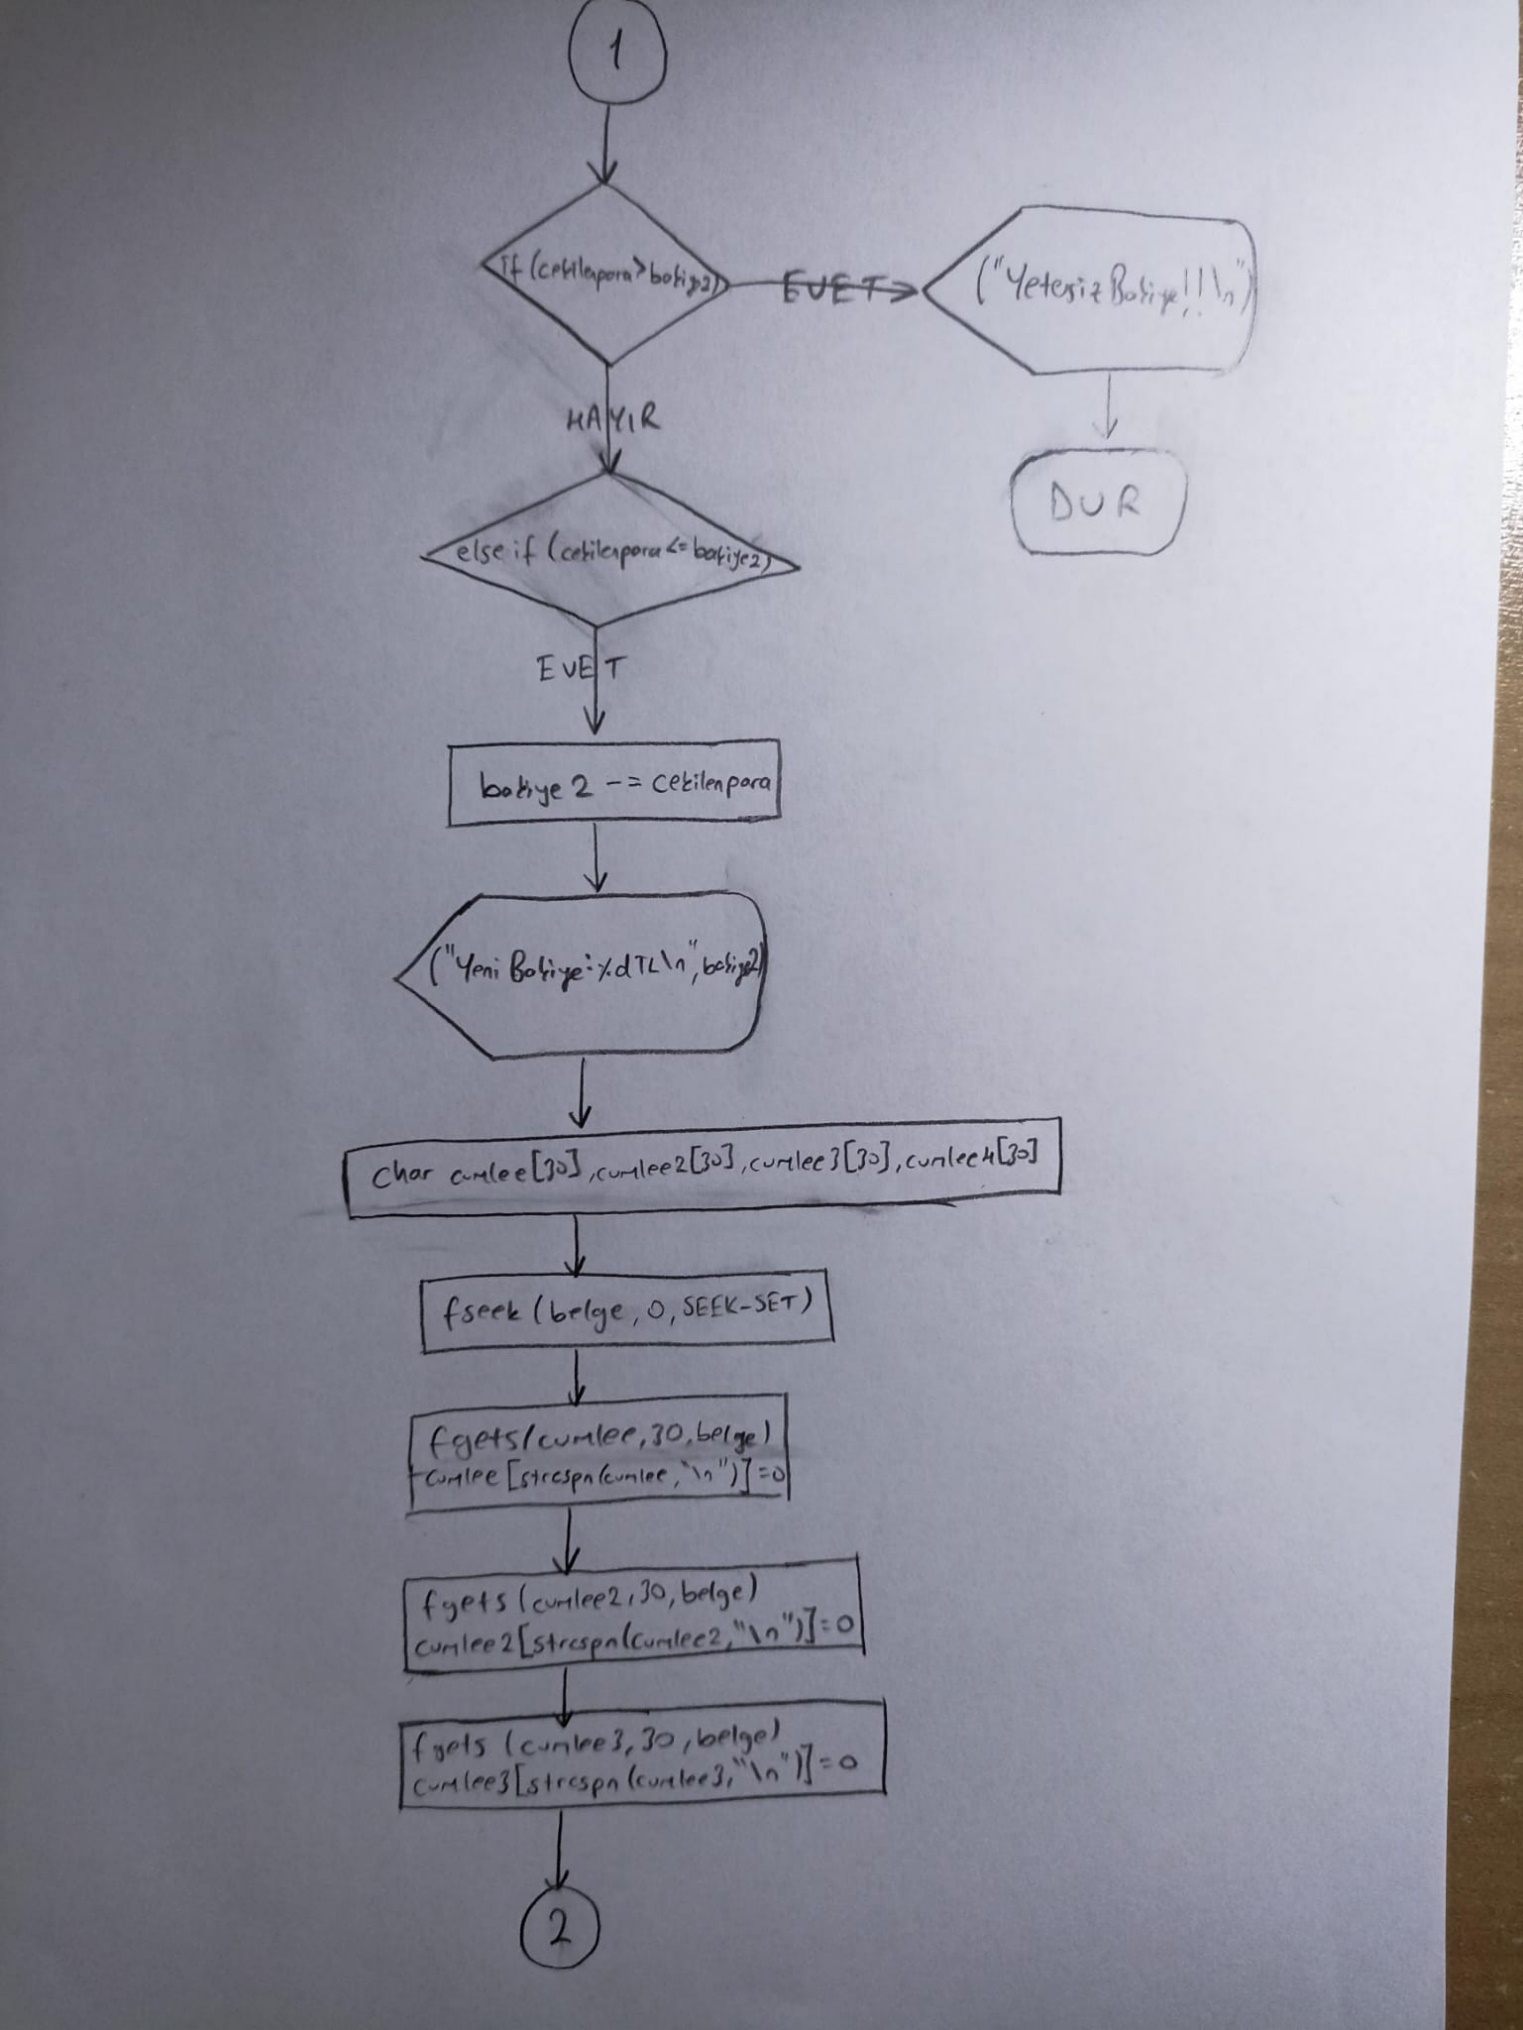 1
if (cekilenpara > bakiye2)
EVET
("Yetersiz Bakiye!!\n")
DUR
HAYIR
else if (cekilenpara <= bakiye2)
EVET
bakiye 2 -= cekilenpara
("Yeni Bakiye: %d TL\n", bakiye2)
char cumlee[30], cumlee2[30], cumlee3[30], cumlee4[30]
fseek (belge, 0, SEEK-SET)
fgets(cumlee, 30, belge)
cumlee[strcspn(cumlee, "\n")] = 0
fgets (cumlee2, 30, belge)
cumlee2[strcspn(cumlee2, "\n")] = 0
fgets (cumlee3, 30, belge)
cumlee3[strcspn(cumlee3, "\n")] = 0
2